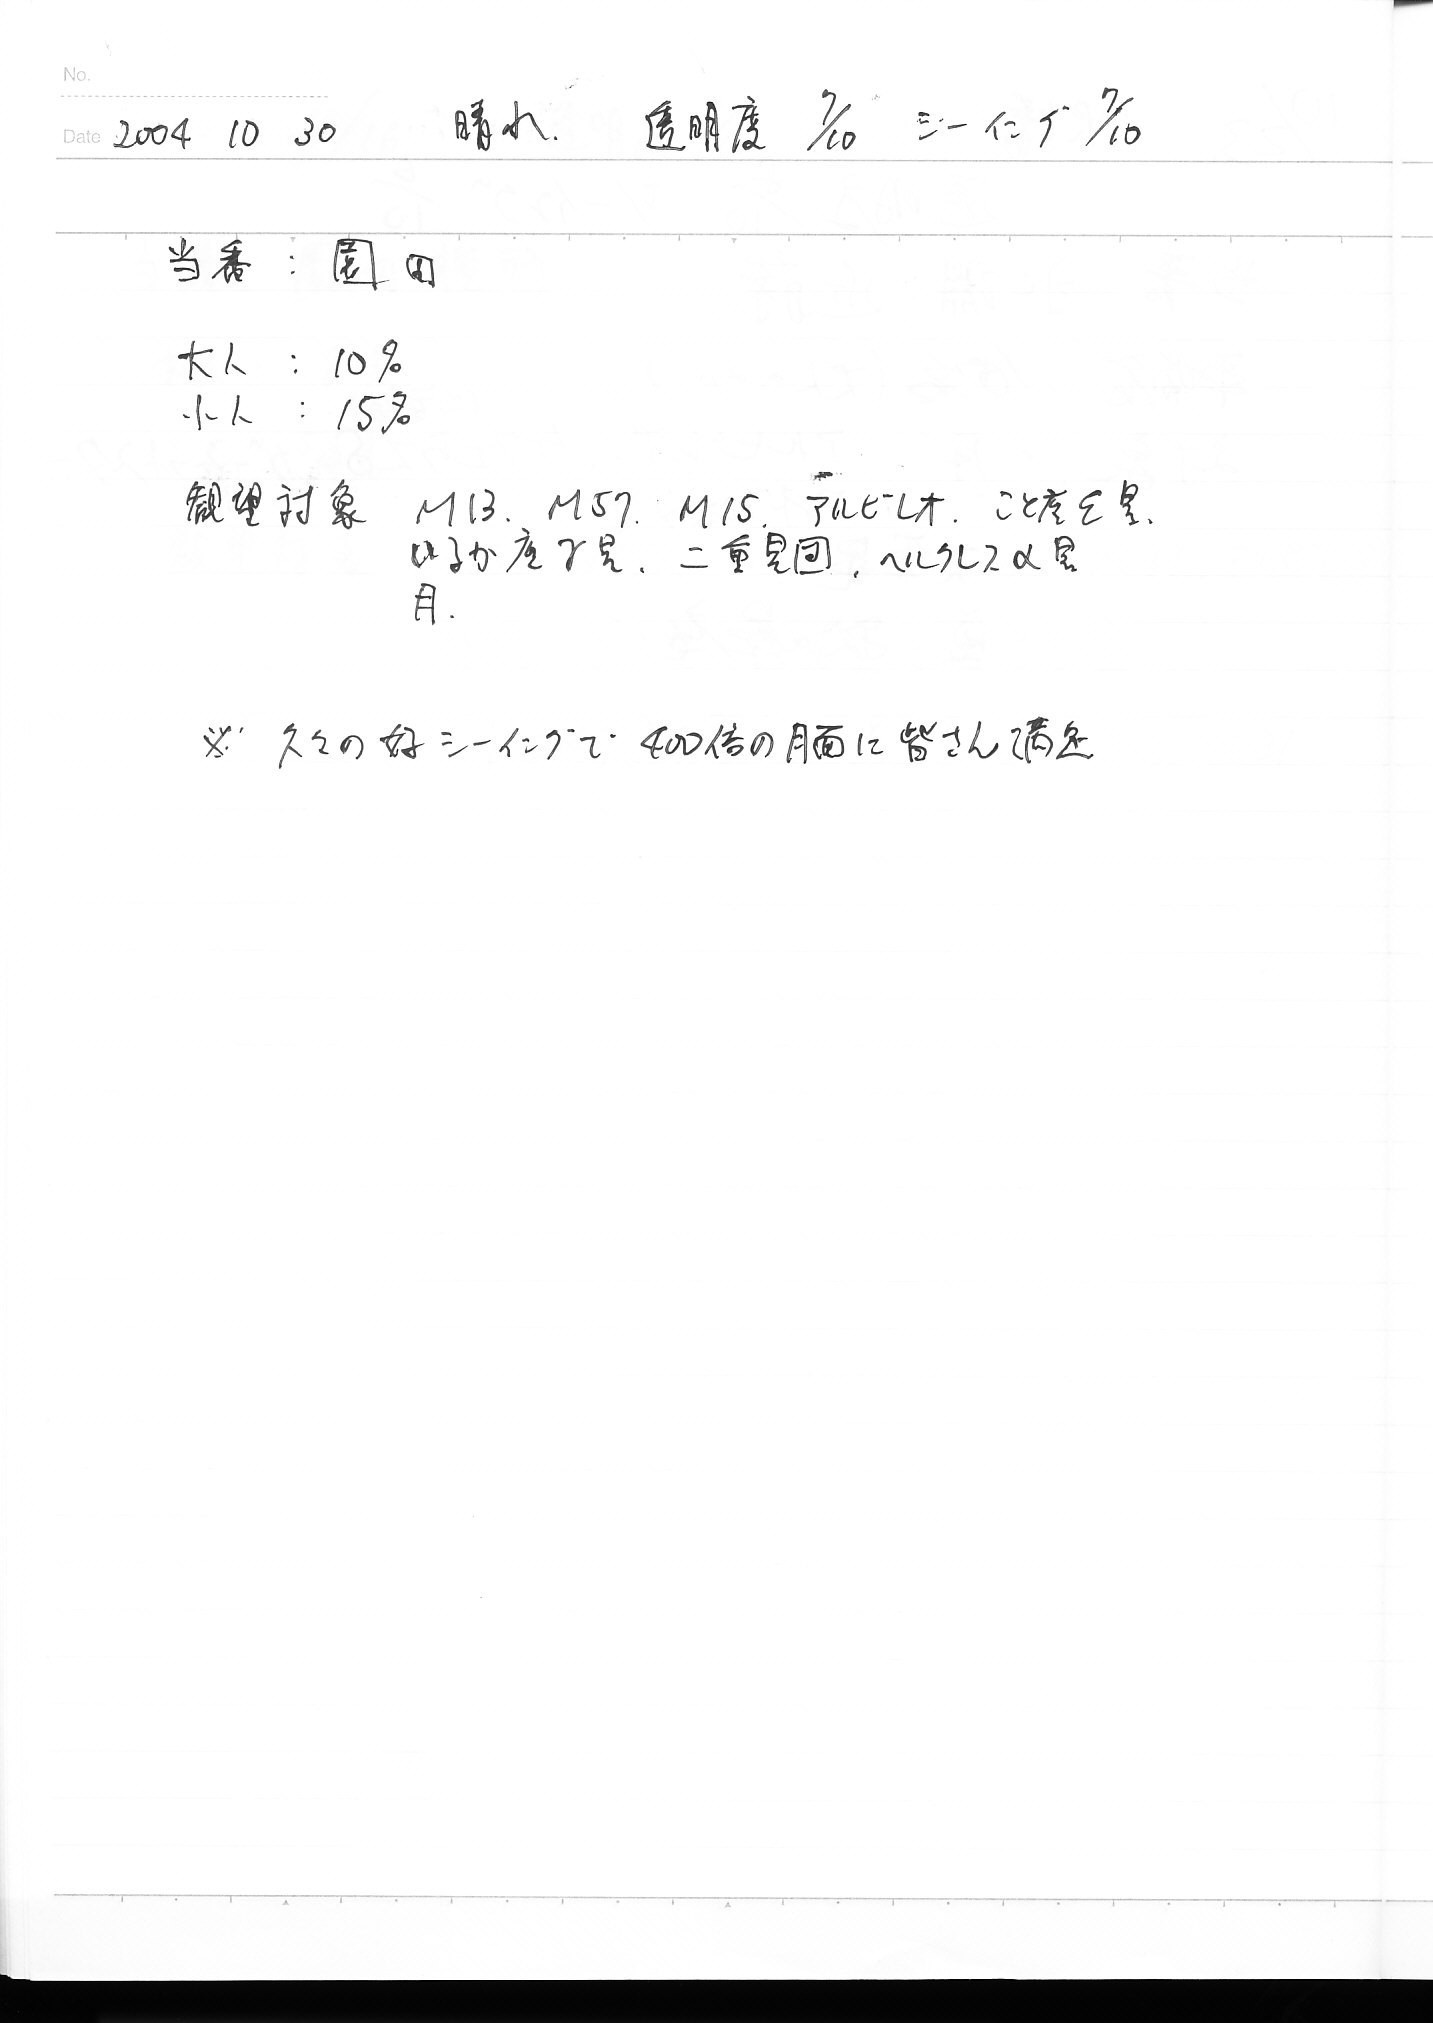 No.
Date 2004 10 30 晴れ. 透明度 7/10 シーイング 7/10
当番 : 園田
大人 : 10名
小人 : 15名
観望対象 M13. M57. M15. アルビレオ. こと座ε星.
いるか座γ星. 二重星団. ヘルクレスα星
月.
※ 久々の好シーイングで 400倍の月面に皆さん満足